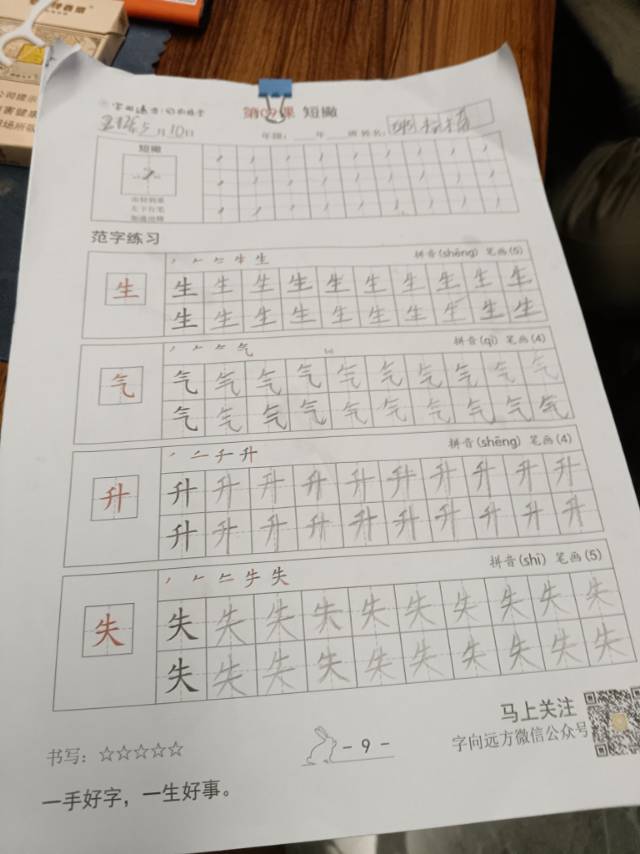 第09课 短撇
5月10日
年级： 年 班 姓名：
短撇
范字练习
生 拼音(shēng) 笔画(5)
生 生 生 生 生 生 生 生 生 生 生
生 生 生 生 生 生 生 生 生 生
气 拼音(qì) 笔画(4)
气 气 气 气 气 气 气 气 气 气 气
气 气 气 气 气 气 气 气 气 气
升 拼音(shēng) 笔画(4)
升 升 升 升 升 升 升 升 升 升 升
升 升 升 升 升 升 升 升 升 升
失 拼音(shī) 笔画(5)
失 失 失 失 失 失 失 失 失 失 失
失 失 失 失 失 失 失 失 失 失
书写：☆☆☆☆☆
- 9 -
马上关注
字向远方微信公众号
一手好字，一生好事。